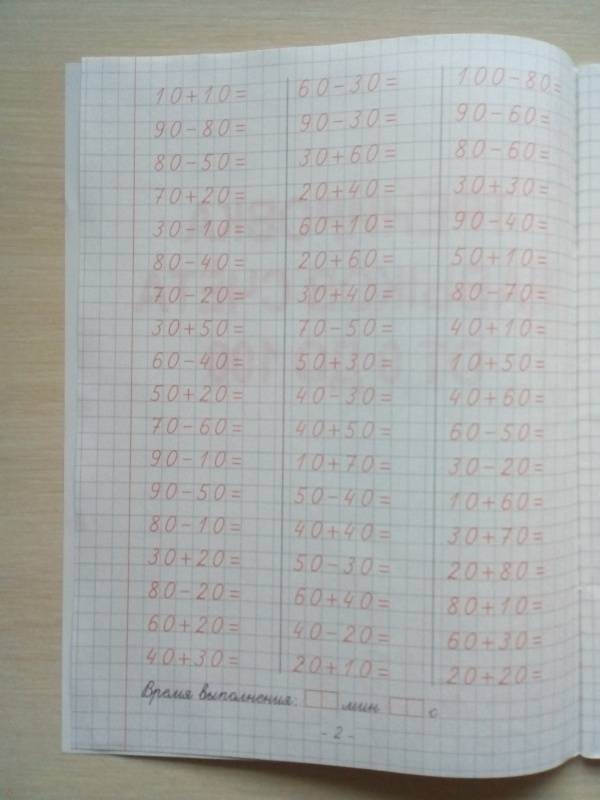 10+10=
90-80=
80-50=
70+20=
30-10=
80-40=
70-20=
30+50=
60-40=
50+20=
70-60=
90-10=
90-50=
80-10=
30+20=
80-20=
60+20=
40+30=
60-30=
90-30=
30+60=
20+40=
60+10=
20+60=
30+40=
70-50=
50+30=
40-30=
40+50=
10+70=
50-40=
40+40=
50-30=
60+40=
40-20=
20+10=
100-80=
90-60=
80-60=
30+30=
90-40=
50+10=
80-70=
40+10=
10+50=
40+60=
60-50=
30-20=
10+60=
30+70=
20+80=
80+10=
60+30=
20+20=
Время выполнения: мин с
- 2 -